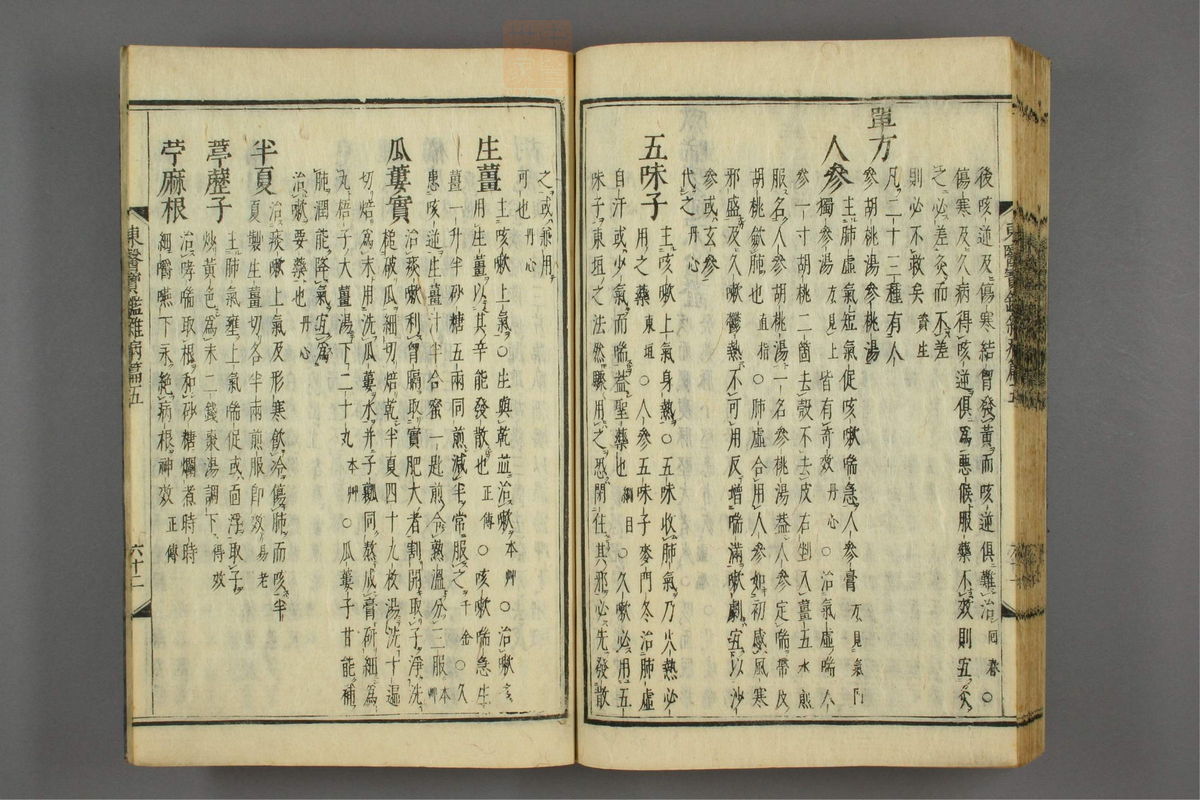 後咳逆及傷寒結胷發黃而咳逆俱難治 回春 ○
傷寒及久病得咳逆俱爲惡候服藥不效則宜灸
之必差灸而不差
則必不救矣 資生
單方 凡二十三種有人
參胡桃湯參桃湯
人參 主肺虛氣短氣促咳嗽喘急人參膏 方見氣門
獨參湯 方見上 皆有奇效 丹心 ○治氣虛喘人
參一寸胡桃二箇去殼不去皮右剉入薑五水煎
服名人參胡桃湯一名參桃湯蓋人參定喘帶皮
胡桃斂肺也 直指 ○肺虛合用人參如初感風寒
邪盛及久嗽鬱熱不可用反增喘滿嗽劇宜以沙
參或玄參
代之 丹心
五味子 主咳嗽上氣身熱○五味收肺氣乃火熱必
用之藥 東垣 ○人參五味子麥門冬治肺虛
自汗或少氣而喘蓋聖藥也 綱目 ○久嗽必用五
味子東垣之法然驟用之恐閉住其邪必先發散
之或兼用
可也 丹心
生薑 主咳嗽上氣○生與乾並治嗽 本艸 ○治嗽多
用生薑以其辛能發散也 正傳 ○咳嗽喘急生
薑一升半砂糖五兩同煎減半常服之 千金 ○久
患咳逆生薑汁半合蜜一匙煎令熟溫分三服 本艸
瓜蔞實 治痰嗽利胷膈取實肥大者割開取子淨洗
槌破瓜細切焙乾半夏四十九枚湯洗十遍
切焙爲末用洗瓜蔞水并子瓤同熬成膏研細爲
丸梧子大薑湯下二十丸 本艸 ○瓜蔞子甘能補
肺潤能降氣宜爲
治嗽要藥也 丹心
半夏 治痰嗽上氣及形寒飮冷傷肺而咳半
夏製生薑切各半兩煎服卽效 易老
葶藶子 主肺氣壅上氣喘促或面浮取子
炒黃色爲末二錢棗湯調下 得效
苧麻根 治哮喘取根和砂糖爛煮時時
細嚼嚥下永絶病根神效 正傳
東醫寶鑑雜病篇五
六十二